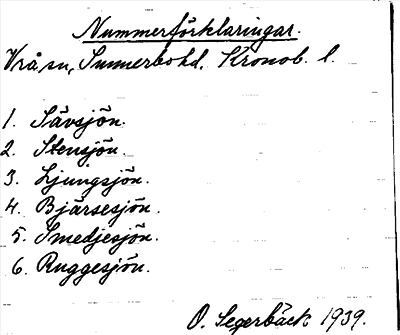 Nummerförklaringar.
Vrå sn, Sunnerbo hd, Kronob. l.
1. Sävsjön.
2. Stensjön.
3. Ljungsjön.
4. Bjärsesjön.
5. Smedjesjön.
6. Ruggesjön.
O. Segerbäck 1939.